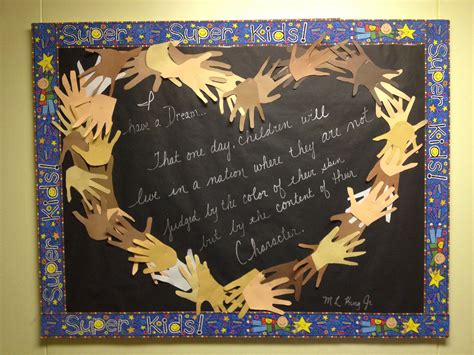 Kids! Super Kids! Super
I
have a Dream...
That one day, children will
live in a nation where they are not
judged by the color of their skin
but by the content of their
Character.
M L King Jr
Super Kids!
Super Kids!
Super Kids!